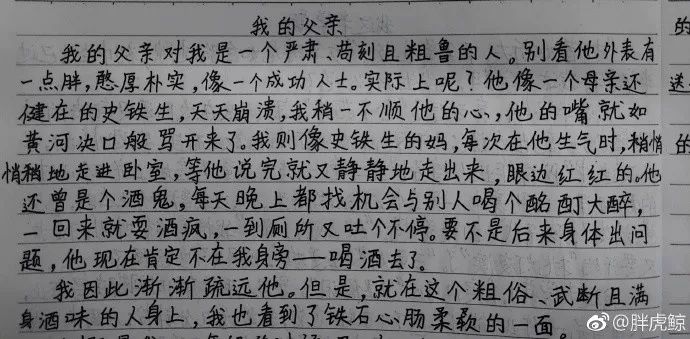 我的父亲
我的父亲对我是一个严肃、苛刻且粗鲁的人。别看他外表有
一点胖,憨厚朴实,像一个成功人士。实际上呢?他像一个母亲还
健在的史铁生,天天崩溃,我稍一不顺他的心,他的嘴就如
黄河决口般骂开来了。我则像史铁生的妈,每次在他生气时,稍悄
悄稍地走进卧室,等他说完就又静静地走出来,眼边红红的。他
还曾是个酒鬼,每天晚上都找机会与别人喝个酩酊大醉,
一回来就耍酒疯,一到厕所又吐个不停。要不是后来身体出问
题,他现在肯定不在我身旁——喝酒去了。
我因此渐渐疏远他。但是,就在这个粗俗、武断且满
身酒味的人身上,我也看到了铁石心肠柔软的一面。
的
送
的
@胖虎鲸